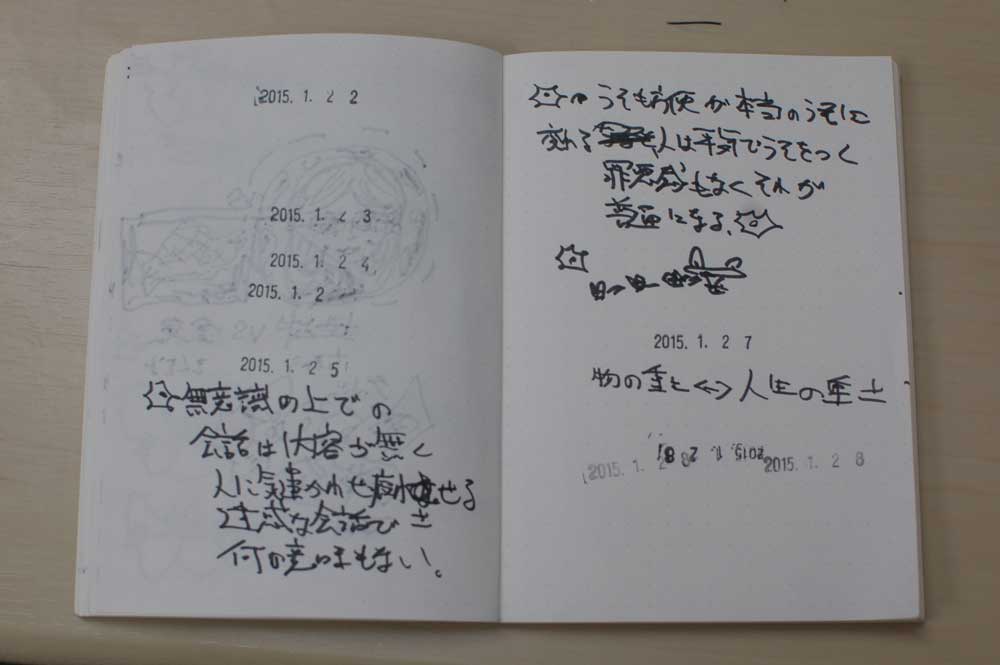 2015. 1. 2 2
2015. 1. 2 3
2015. 1. 2 4
2015. 1. 2
2015. 1. 2 5
無意識の上での
会話は内容が無く
人に気遣かわせ疲れさせる
迷惑な会話で
何の意味もない。
うそも方便が本当のうそに
変わる 人は平気でうそをつく
罪悪感もなくそれが
普通になる、
2015. 1. 2 7
物の重さ⇔人生の重さ
2015. 1. 2 8
2015. 1. 2 8
2015. 1. 2 8